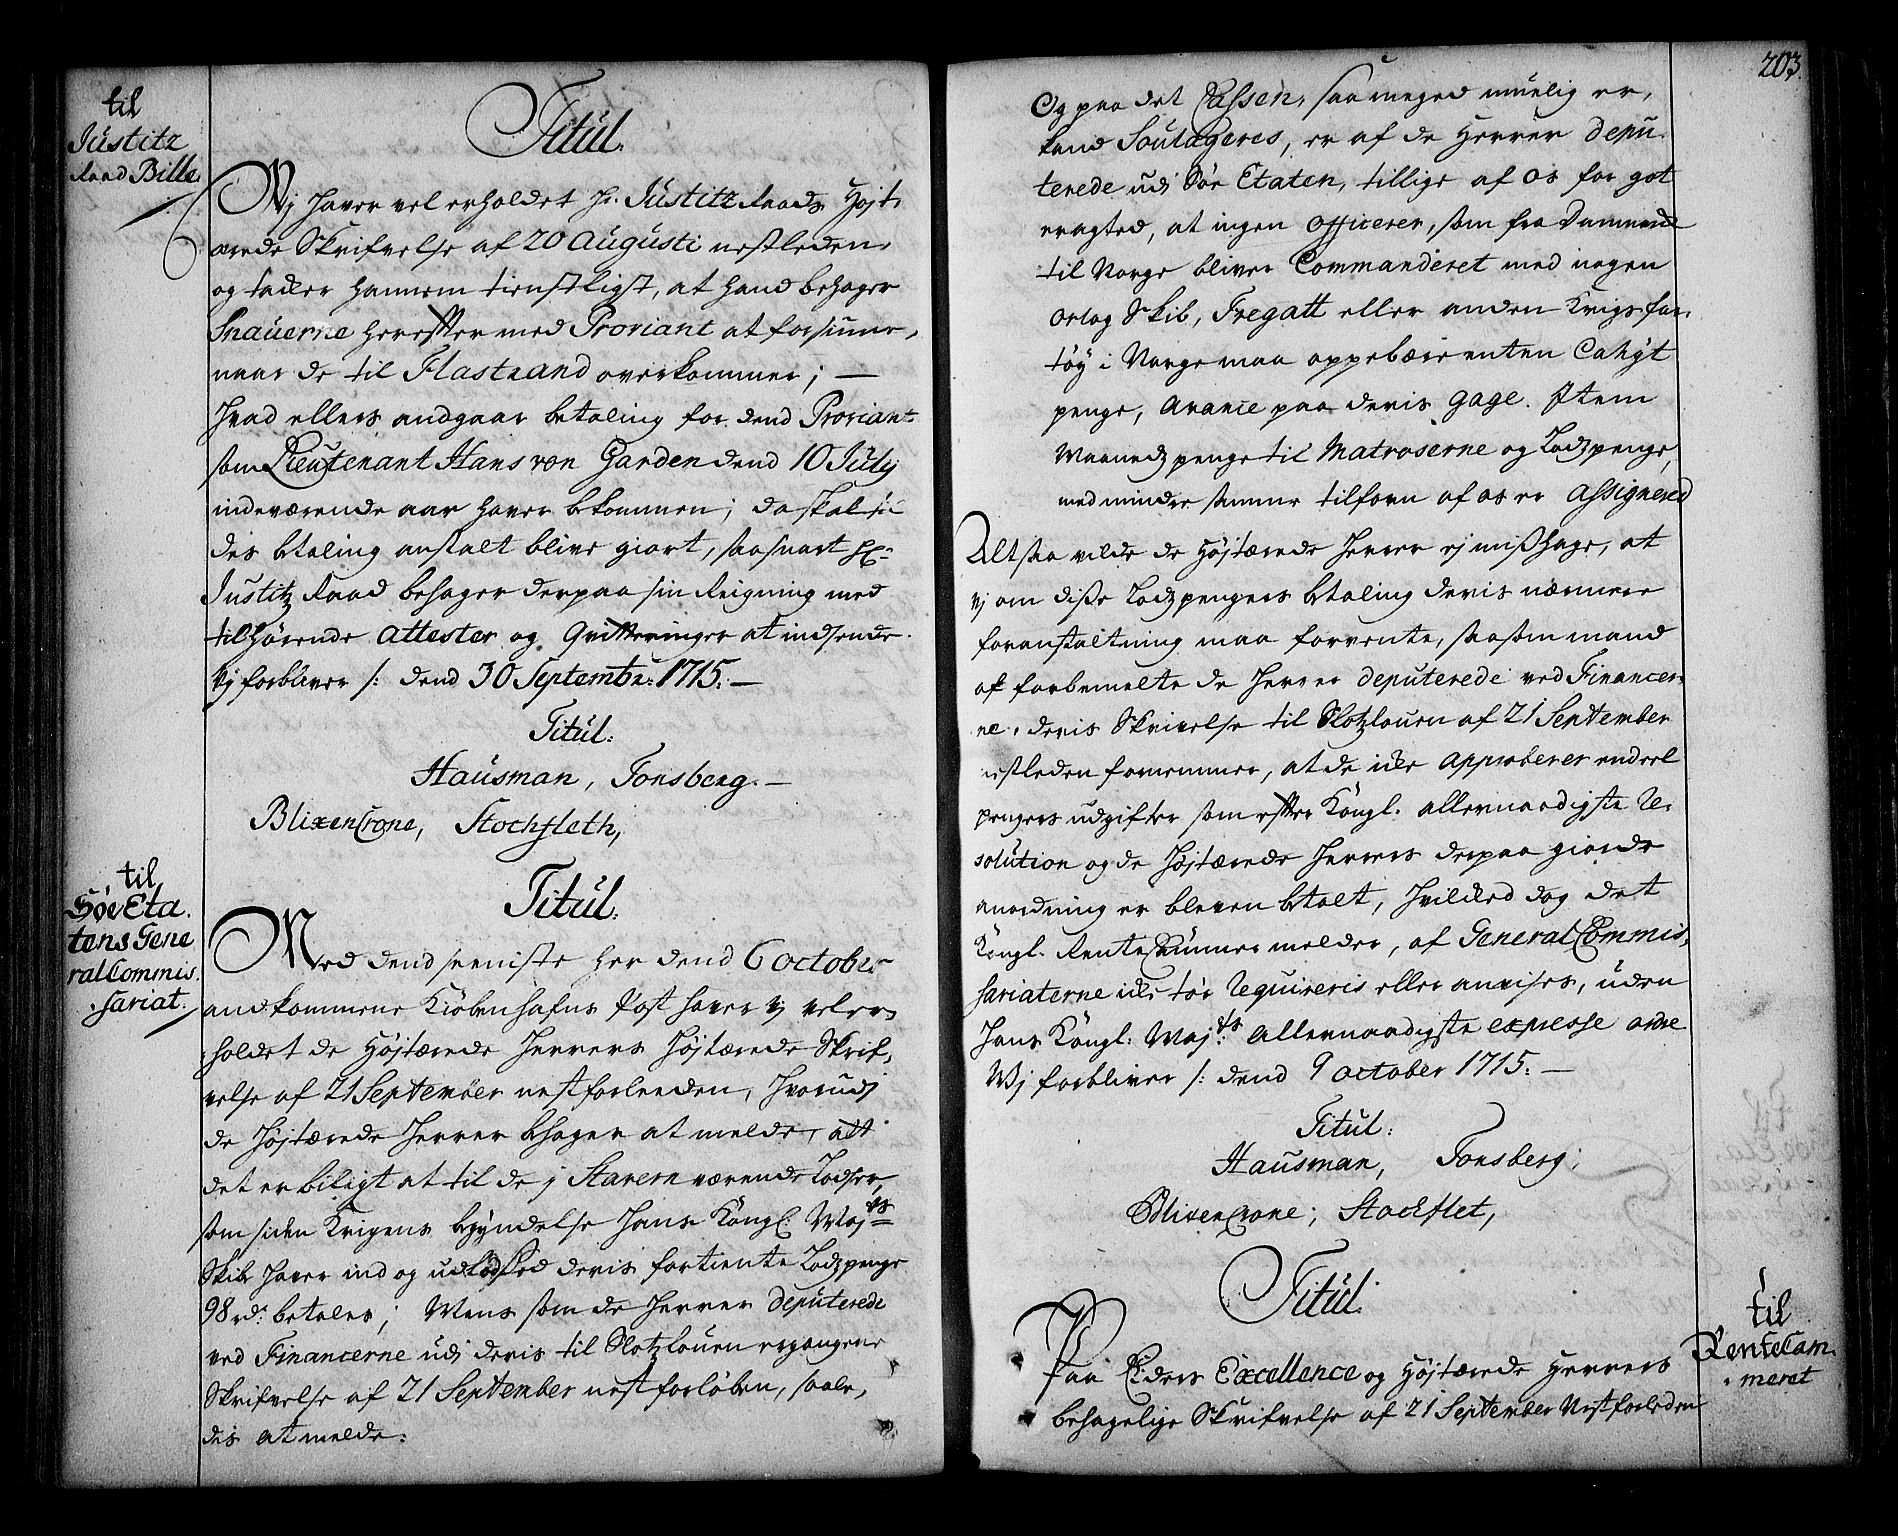 til
Justitz
Raad Bille.
Titul.
Wj hafver vel erholdet Hr. Justitz Raads Høyt
ærede Skrifvelse af 20 Augusti nestleden,
og takker hannem tienstligst, at hand behager
Snauerne herefter med Proviant at forsiune,
naar de til Flastrand overkommer; —
Hvad ellers andgaar betaling for dend Proviant
som Lieutenant Hans von Garden dend 10 July
indeværende aar hafver bekommen; da skal
des betaling anstalt blive giort, saa snart Hr:
Justitz Raad behager derpaa sin Reigning med
tilhørende attester og Qvitteringer at indsende.
Vj forbliver /: dend 30 Septembr: 1715. —
Titul:
Hausman, Tonsberg. —
BlixenCrone, Stochfleth,
til
SøeEta.
tens Gene
ral Commis.
sariat.
Titul.
Med dend seeniste her dend 6 octobr
andkommene Kiøbenhafns Post hafver vj veler
holdet de Høytærede Herrers Høytærede Skrif,
velse af 21 September nestforleeden, hvorudj
de Høytærede Herrer behager at melde, att
det er biligt at til de j Stavern værende Lodser,
som siden Krigens begyndelse Hans Kongl: Mayts
Skibe hafver ind og udlodsed deris fortiente Lodzpenge
98 rd: betales; Mens som de Herrer deputerede
ved Financerne udj deris til Slotzlouen ergangene
Skrifvelse af 21 September nestforløben, saale,
dis at melde:
203.
Og paa det Cassen, saa meged muelig er,
kand Soulageres, er af de Herrer depu
terede udj Søe Etaten, tillige af os for got
eragted, at ingen officerer, som fra Danmark
til Norge bliver Commanderet med nogen
orlog Skib, Fregatt eller anden Krigs far
tøy i Norge maa oppebære enten Cahyt
penge, avance paa deris gage. Item
Maanedz penge til Matroserne og Lodzpenge,
med mindre samme tilforn af os er assignered
Altsaa vilde de Høytærede Herrer ej mishage, at
vj om disse Lodzpengers betaling deris nærmere
foranstaltning maa forvente, saasom mand
af forbemelte de Herrer deputerede ved Financer,
ne, deris Skrivelse til Slotzlouen af 21 September
nestleden fornemmer, at de icke approberer endeel
pengers udgifter som efter Kongl. allernaadigste Re,
solution og de Høytærede Herrers derpaa giorde
anordning er bleven betalt, hvilcked dog det
Kongl. RenteKammer melder, af General Commis,
sariaterne icke tør Requireris eller anvises, uden
Hans Kongl: Mayts: allernaadigste expresse ordre
Wj forbliver /: dend 9 october 1715: —
Titul:
Hausman, Tonsberg;
BlixenCrone; Stockflet,
til
RenteCam.
meret
Titul.
Paa Eders Excellence og Høytærede Herrers
behagelige Skrifvelse af 21 September Nestforleden